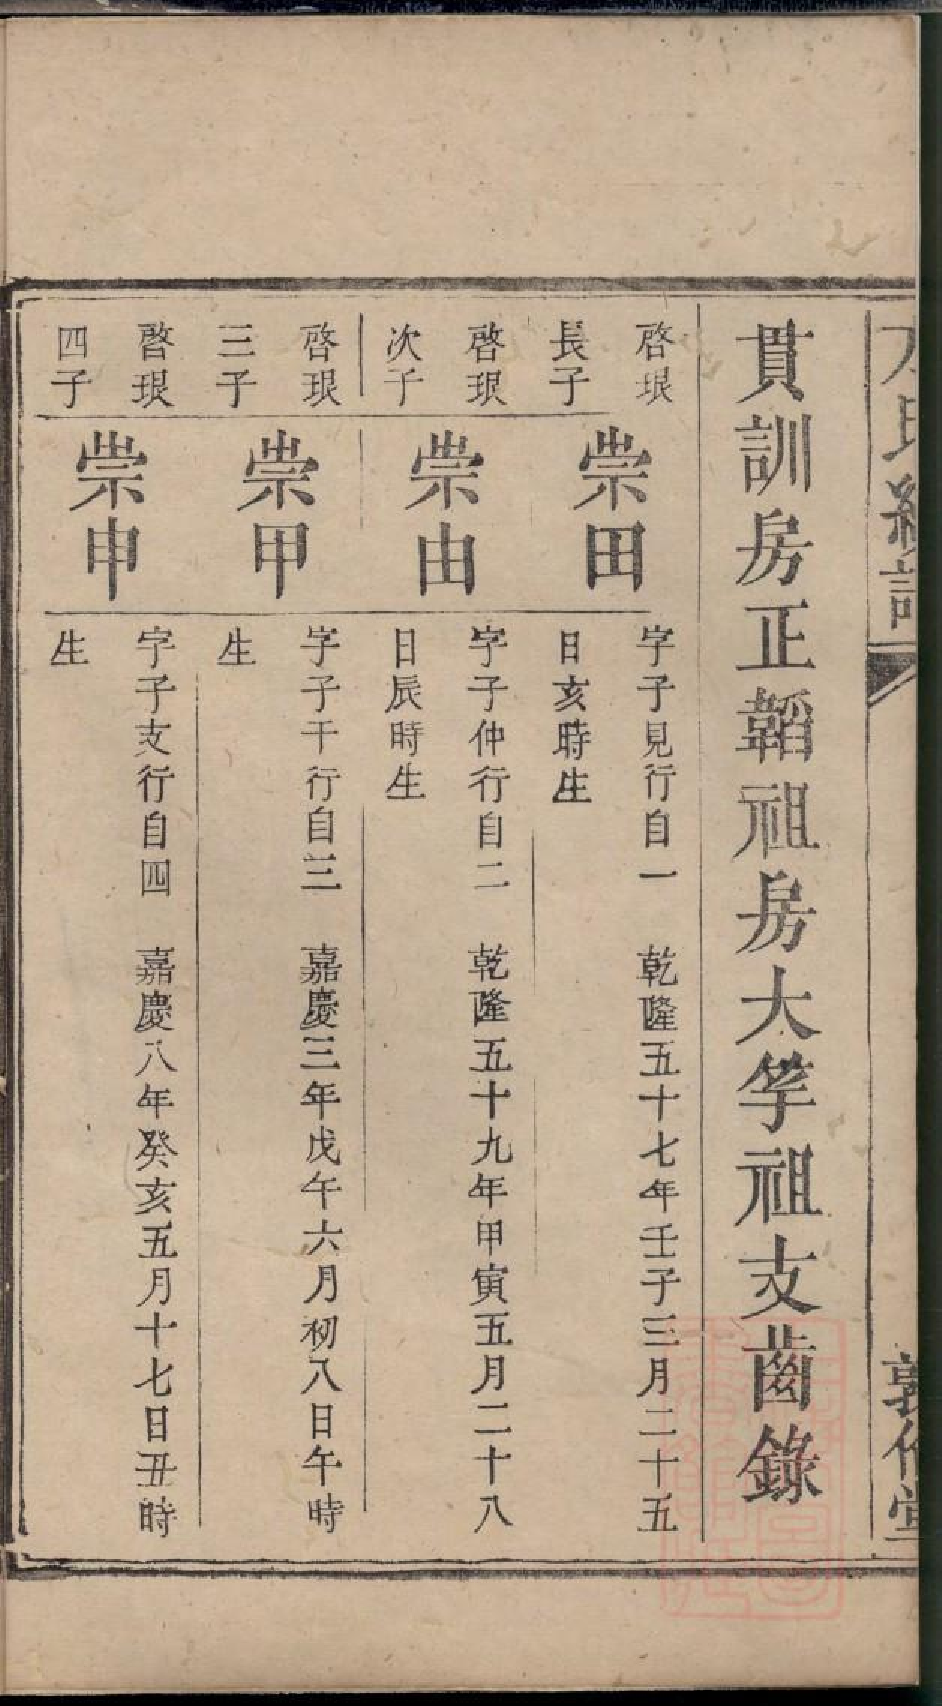 貫訓房正韜祖房大祖支齒錄
啓珢
長子
崇田
字子見行自一　乾隆五十七年壬子三月二十五
日亥時生
啓珢
次子
崇由
字子仲行自二　乾隆五十九年甲寅五月二十八
日辰時生
啓珢
三子
崇甲
字子干行自三　嘉慶三年戊午六月初八日午時
生
啓珢
四子
崇申
字子支行自四　嘉慶八年癸亥五月十七日丑時
生